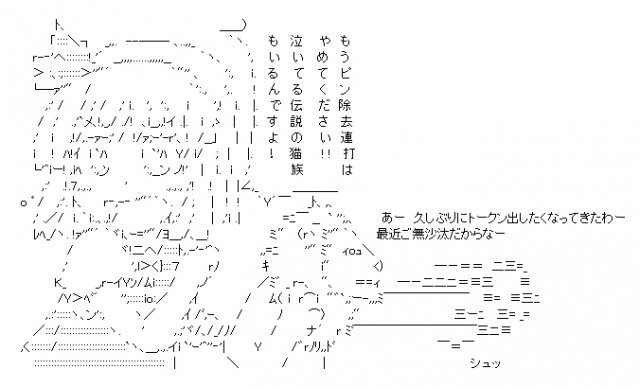 もうピン除去連打は
やめてください!!
泣いてる伝説の猫族
もいるんですよ!
あー 久しぶりにトークン出したくなってきたわー
最近ご無沙汰だからなー
シュッ